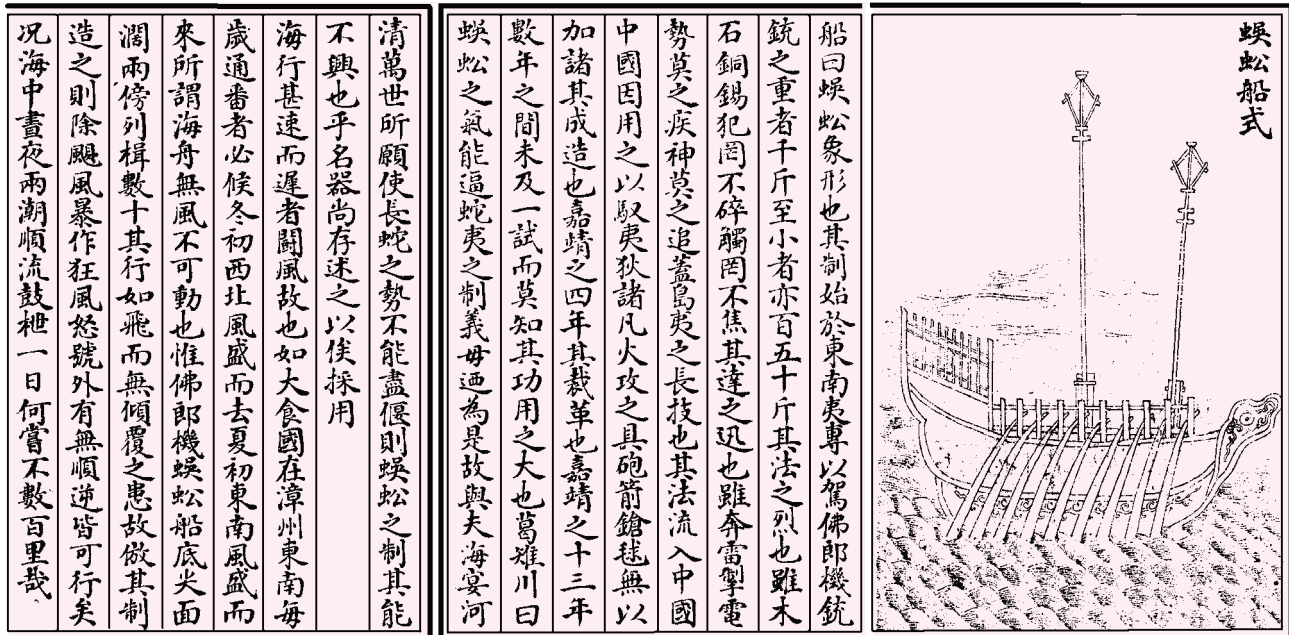 蜈蚣船式
船曰蜈蚣象形也其制始於東南夷專以駕佛郎機銃
銃之重者千斤至小者亦百五十斤其法之烈也雖木
石銅錫犯罔不碎觸罔不焦其達之迅也雖奔雷掣電
勢莫之疾神莫之追蓋島夷之長技也其法流入中國
中國因用之以馭夷狄諸凡火攻之具砲箭鎗毬無以
加諸其成造也嘉靖之四年其裁革也嘉靖之十三年
數年之間未及一試而莫知其功用之大也葛稚川曰
蜈蚣之氣能逼蛇夷之制義毋迺為是故與夫海宴河
清萬世所願使長蛇之勢不能盡偃則蜈蚣之制其能
不興也乎名器尚存述之以俟採用
海行甚速而遲者鬬風故也如大食國在漳州東南每
歲通番者必候冬初西北風盛而去夏初東南風盛而
來所謂海舟無風不可動也惟佛郎機蜈蚣船底尖面
濶兩傍列楫數十其行如飛而無傾覆之患故倣其制
造之則除颶風暴作狂風怒號外有無順逆皆可行矣
况海中晝夜兩潮順流鼓枻一日何嘗不數百里哉